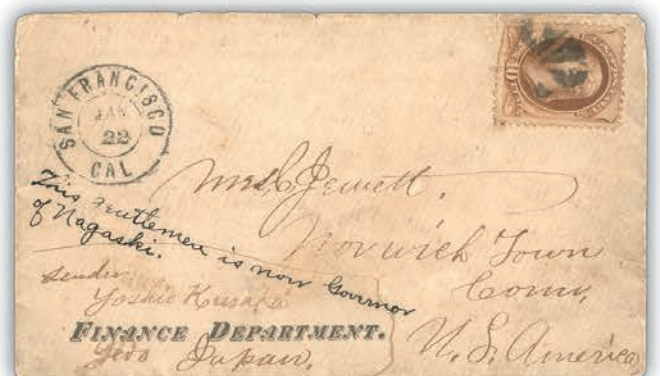 SAN FRANCISCO
JAN
22
CAL
Mrs C Jewett.
Norwich Town
Conn,
U.S. America
This gentlemen is now Governor
of Nagaski.
Sender
Yoshio Kusaka
FINANCE DEPARTMENT.
Yedo Japan,